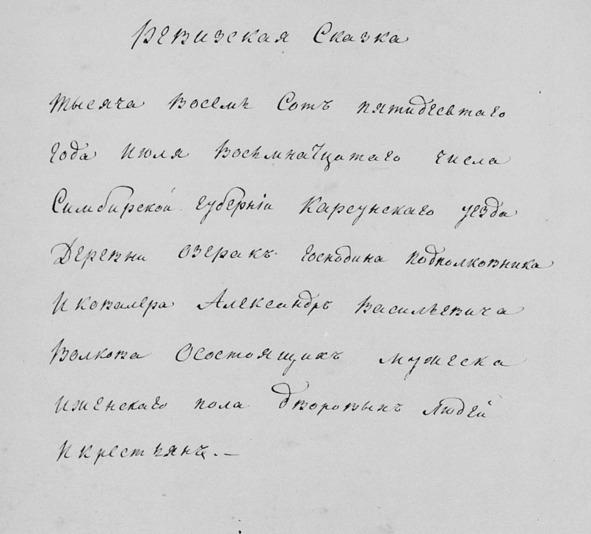 Ревизская Сказка
тысяча Восемь Сотъ пятидесятаго
года Июля Восьмнатцатаго числа
Симбирской губерніи Карсунскаго уезда
Деревни Озеракъ господина подполковника
И ковалера Александръ Васильевича
Волкова Осостоящихъ мужеска
Иженскаго пола дворовыхъ людей
Икрестьянъ.—